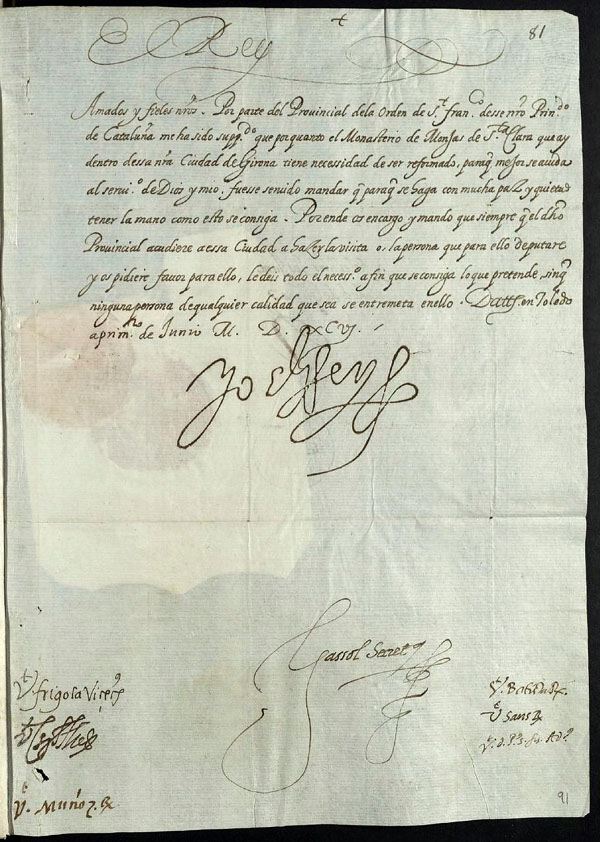 81
El Rey
Amados y fieles nr̃os. Por parte del Provincial dela Orden de S.t fran.co desse nr̃o Prin.do
de Cataluña me ha sido supp.do que porquanto el Monasterio de Monjas de S.ta Clara que ay
dentro dessa nr̃a Ciudad de Girona tiene necessidad de ser reformado, paraq̃ mejor se acuda
al servi.o de Dios y mio, fuesse servido mandar q̃ paraq̃ se haga con mucha paz y quietud
tener la mano como esto se consiga. Por ende os encargo y mando que siempre q̃ el dh̃o
Provincial acudiere a essa Ciudad a hazer la visita o, la persona que para ello deputare
y os pidiere favor para ello, le deis todo el necess.o a fin que se consiga lo que pretende, sinq̃
ninguna persona de qualquier calidad que sea se entremeta en ello. Datt. en Toledo
a prim.ro de Junio M. D. XCVJ.
Yo el Rey
Gassol Secret.
V.t frigola Vicec.
V. Muñoz R.
V.t Sans R.
91